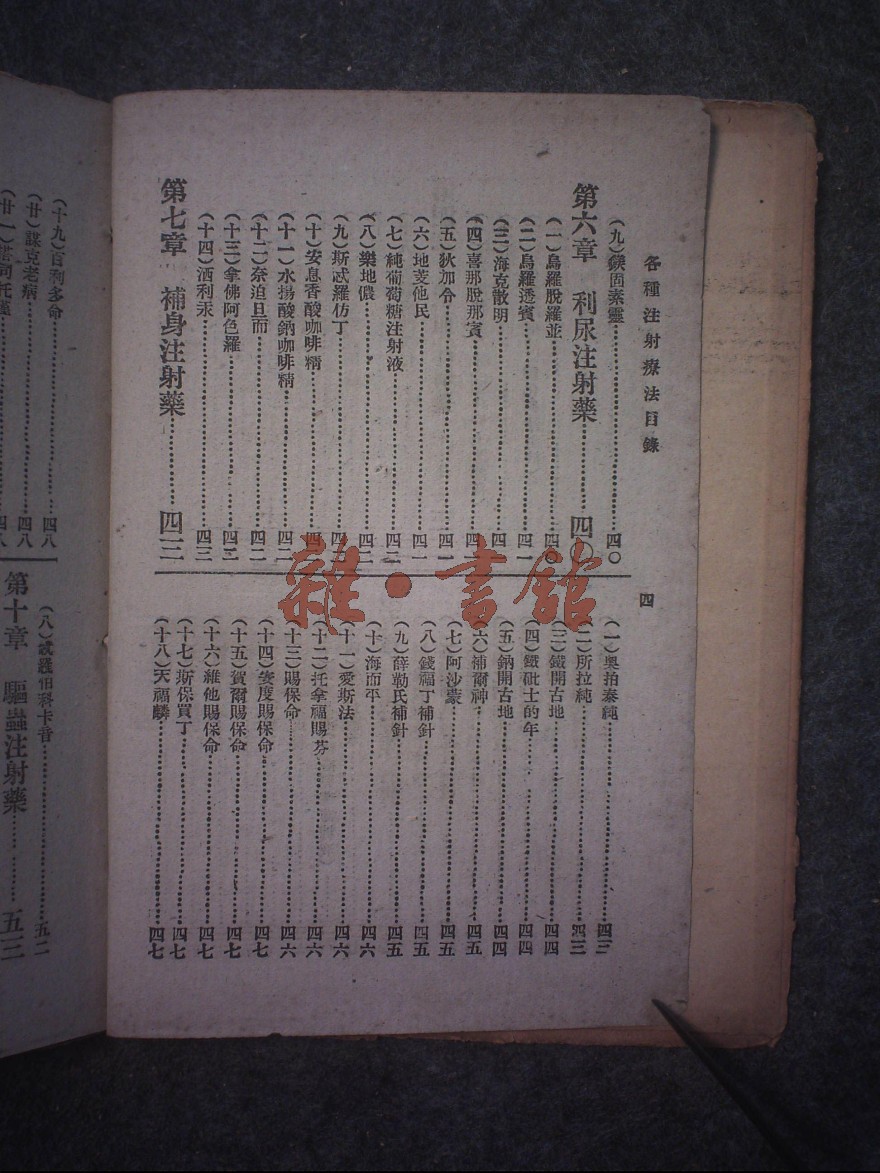 各種注射療法目錄
四
(九)鎂固素靈 四〇
第六章 利尿注射藥 四〇
(一)烏羅脫羅並 四〇
(二)烏羅透賓 四一
(三)海克散明 四一
(四)喜那脫那賓 四一
(五)狄加今 四一
(六)地芰他民 四一
(七)純葡萄糖注射液 四二
(八)樂地儂 四二
(九)斯忒羅仿丁
(十)安息香酸咖啡精
(十一)水楊酸鈉咖啡精 四二
(十二)奈迫旦而 四二
(十三)拿佛阿色羅
(十四)洒利汞 四三
第七章 補身注射藥 四三
(一)奧拍泰純
(二)所拉純 四三
(三)鐵開古地 四四
(四)鐵砒士的年 四四
(五)鈉開古地 四四
(六)補爾神 四五
(七)阿沙蒙 四五
(八)錢福丁補針 四五
(九)薛勒氏補針 四五
(十)海而平 四六
(十一)愛斯法 四六
(十二)托拿福賜芬 四六
(十三)賜保命 四六
(十四)安度賜保命 四七
(十五)賀爾賜保命 四七
(十六)維他賜保命 四七
(十七)斯保買丁 四七
(十八)天福麟 四七
(十九)百利多命 四八
(廿)謀克老病 四八
(廿一) 四八
(八) 五二
第十章 驅蟲注射藥 五三
雜·書館